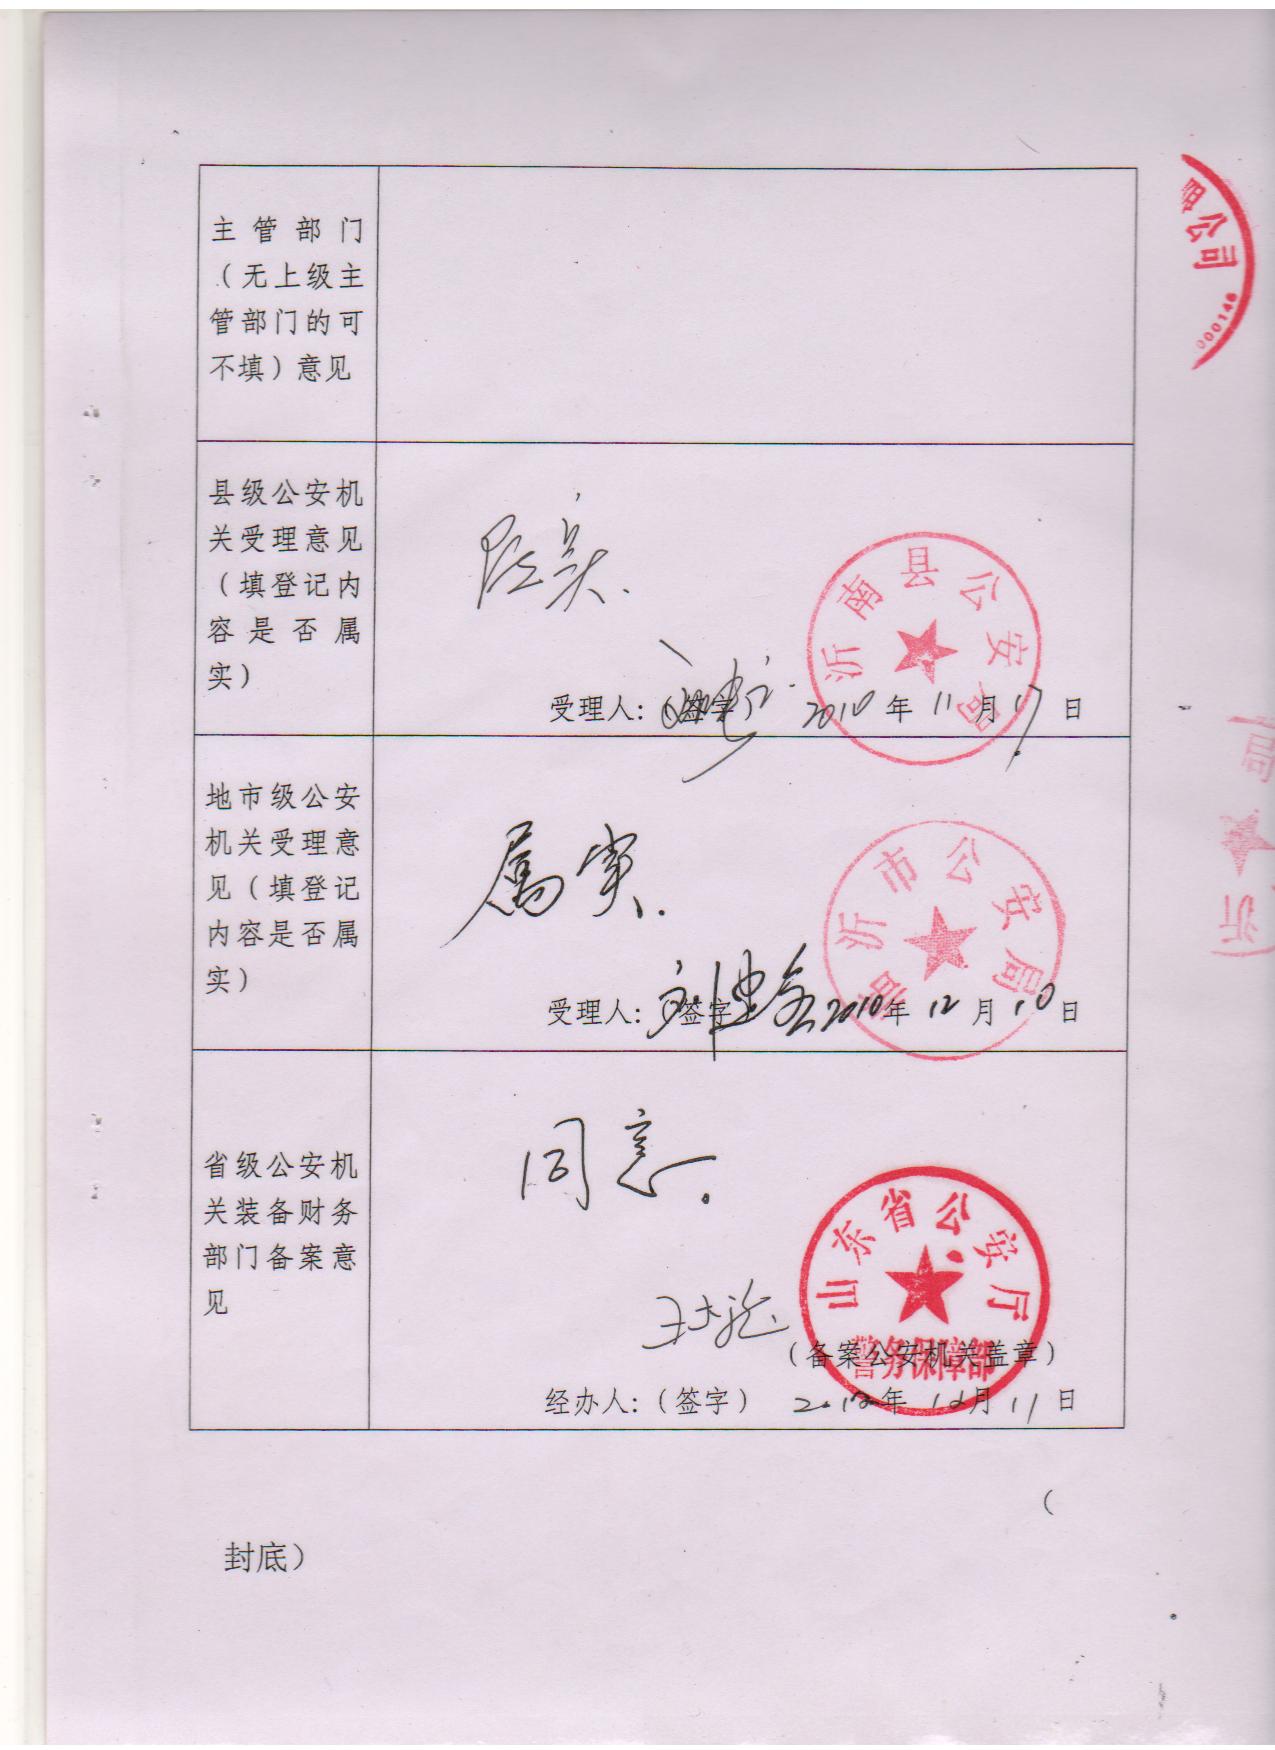 主管部门
（无上级主
管部门的可
不填）意见
县级公安机
关受理意见
（填登记内
容是否属
实）
属实.
沂南县公安局
受理人：（签字） 2010年11月17日
地市级公安
机关受理意
见（填登记
内容是否属
实）
属实.
临沂市公安局
受理人：（签字 2010年12月10日
省级公安机
关装备财务
部门备案意
见
同意.
山东省公安厅
警务保障部
（备案公安机关盖章）
经办人：（签字） 年12月11日
（
封底）
公司
000146
沂